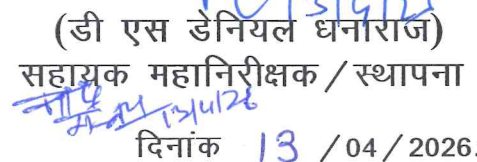 (डी एस डेनियल धनाराज)
सहायक महानिरीक्षक / स्थापना
13/4/26
दिनांक 13 / 04 / 2026.